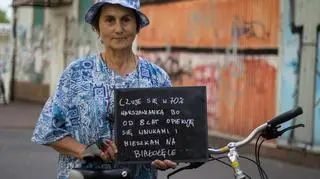 CZUJĘ SIĘ W 70%
WARSZAWIANKĄ BO
OD 8 LAT OPIEKUJĘ
SIĘ WNUKAMI I
MIESZKAM NA
BIAŁOŁĘCE